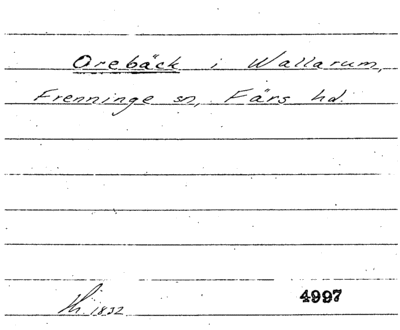 Orebäck i Wallarum,
Frenninge sn, Färs hd.
1832
4997